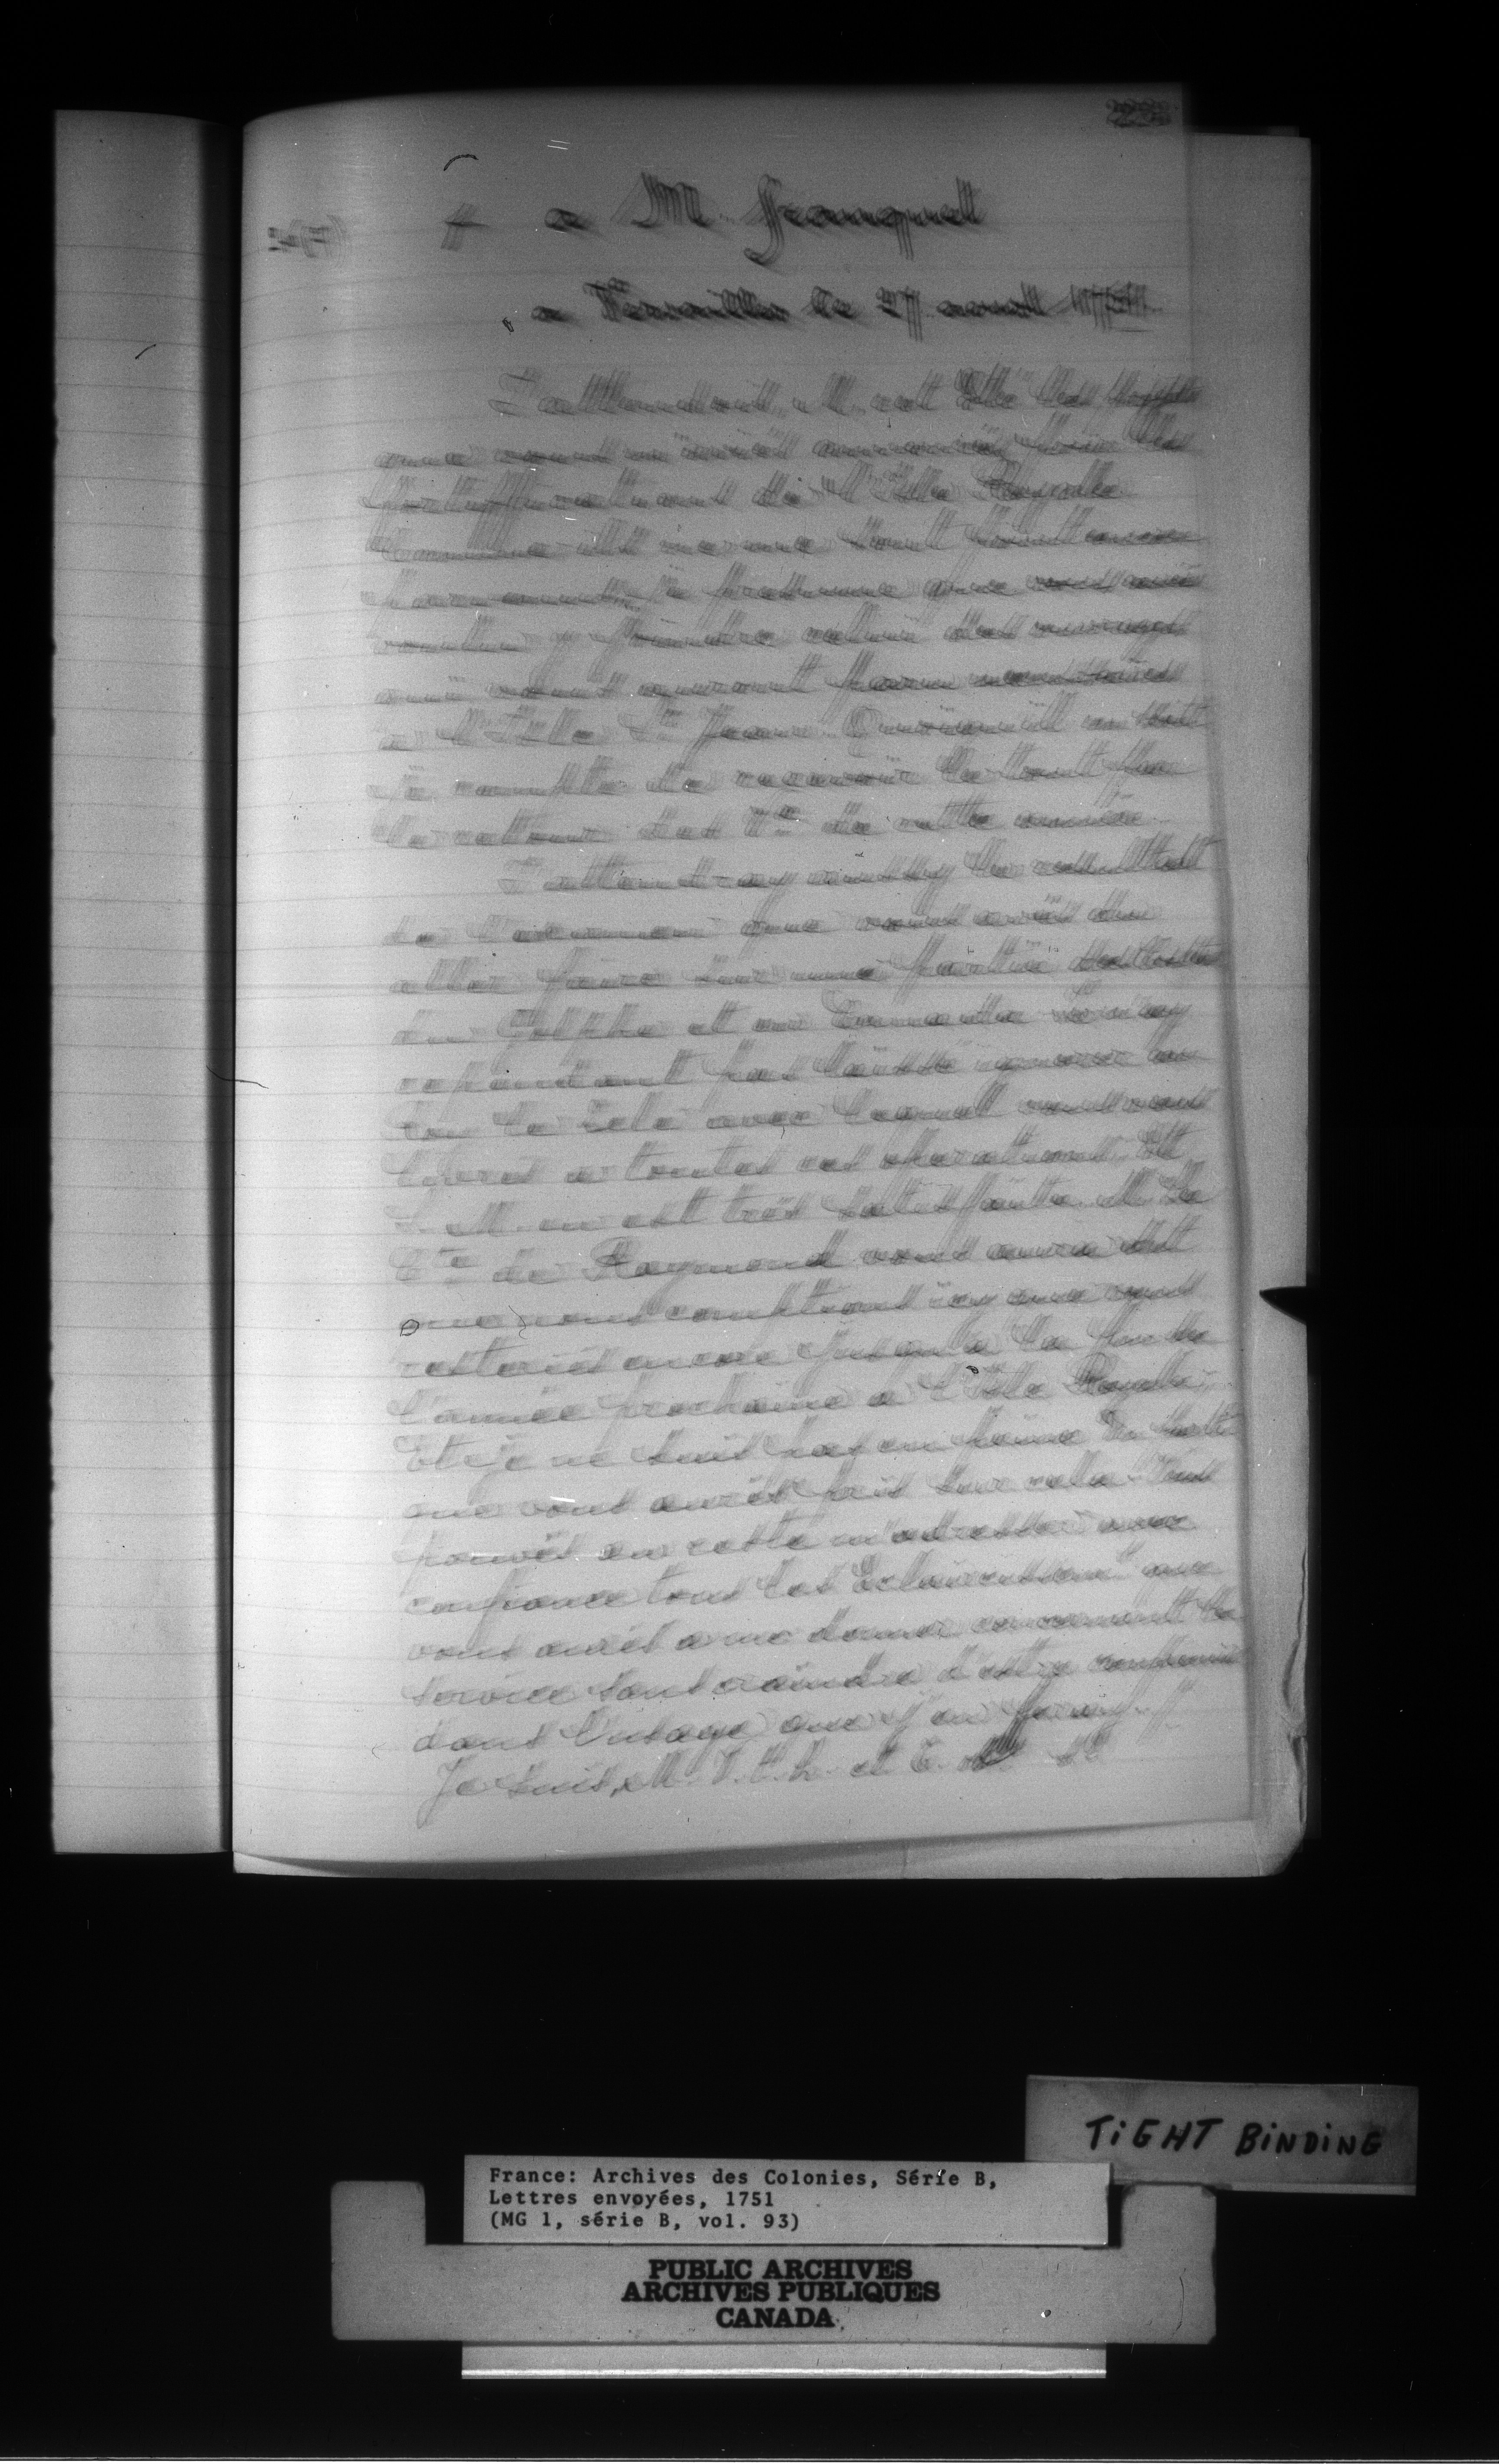 a M. franquet
a Versailles le 27 avril 1751.
J'attendrai, M. cet Eté les
que vous m'aviés annoncés pour les
fortiffications de l'Isle Royalle.
et je presume que vous
y joindre celuis des ouvrages
qui vous auront parus necessaires
a l'Isle St Jean. Quoiqu'il en soit
je compte de recevoir le tout par
le retour des Vx de cette année.
J'attendray aussy le resultat
de l'examen que vous aviés du
aller faire sur une partie des Costes
du Golphe et en Canada. Je n'ay
cependant pas laissé ignorer au
Roy le zele avec lequel vous vous
livrés a toutes ces operations. Et
S. M. en est très satisfaite. M. Le
Cte de Raymond vous aura dit
que nous comptions icy que vous
resteriés encore jusqu'a la fin de
l'année prochaine a l'Isle Royalle,
Et je ne suis pas en peine du parti
que vous aurés pris sur cela. Vous
pouvés au reste m'adresser avec
confiance tous les Eclaircissemens que
vous aurés a me donner concernant le
service sans craindre d'estre compromis
dans l'usage que j'en feray.
Je suis, M. V. t. h. et t.
TiGHT BiNDiNG
France: Archives des Colonies, Série B,
Lettres envoyées, 1751
(MG 1, série B, vol. 93)
PUBLIC ARCHIVES
ARCHIVES PUBLIQUES
CANADA